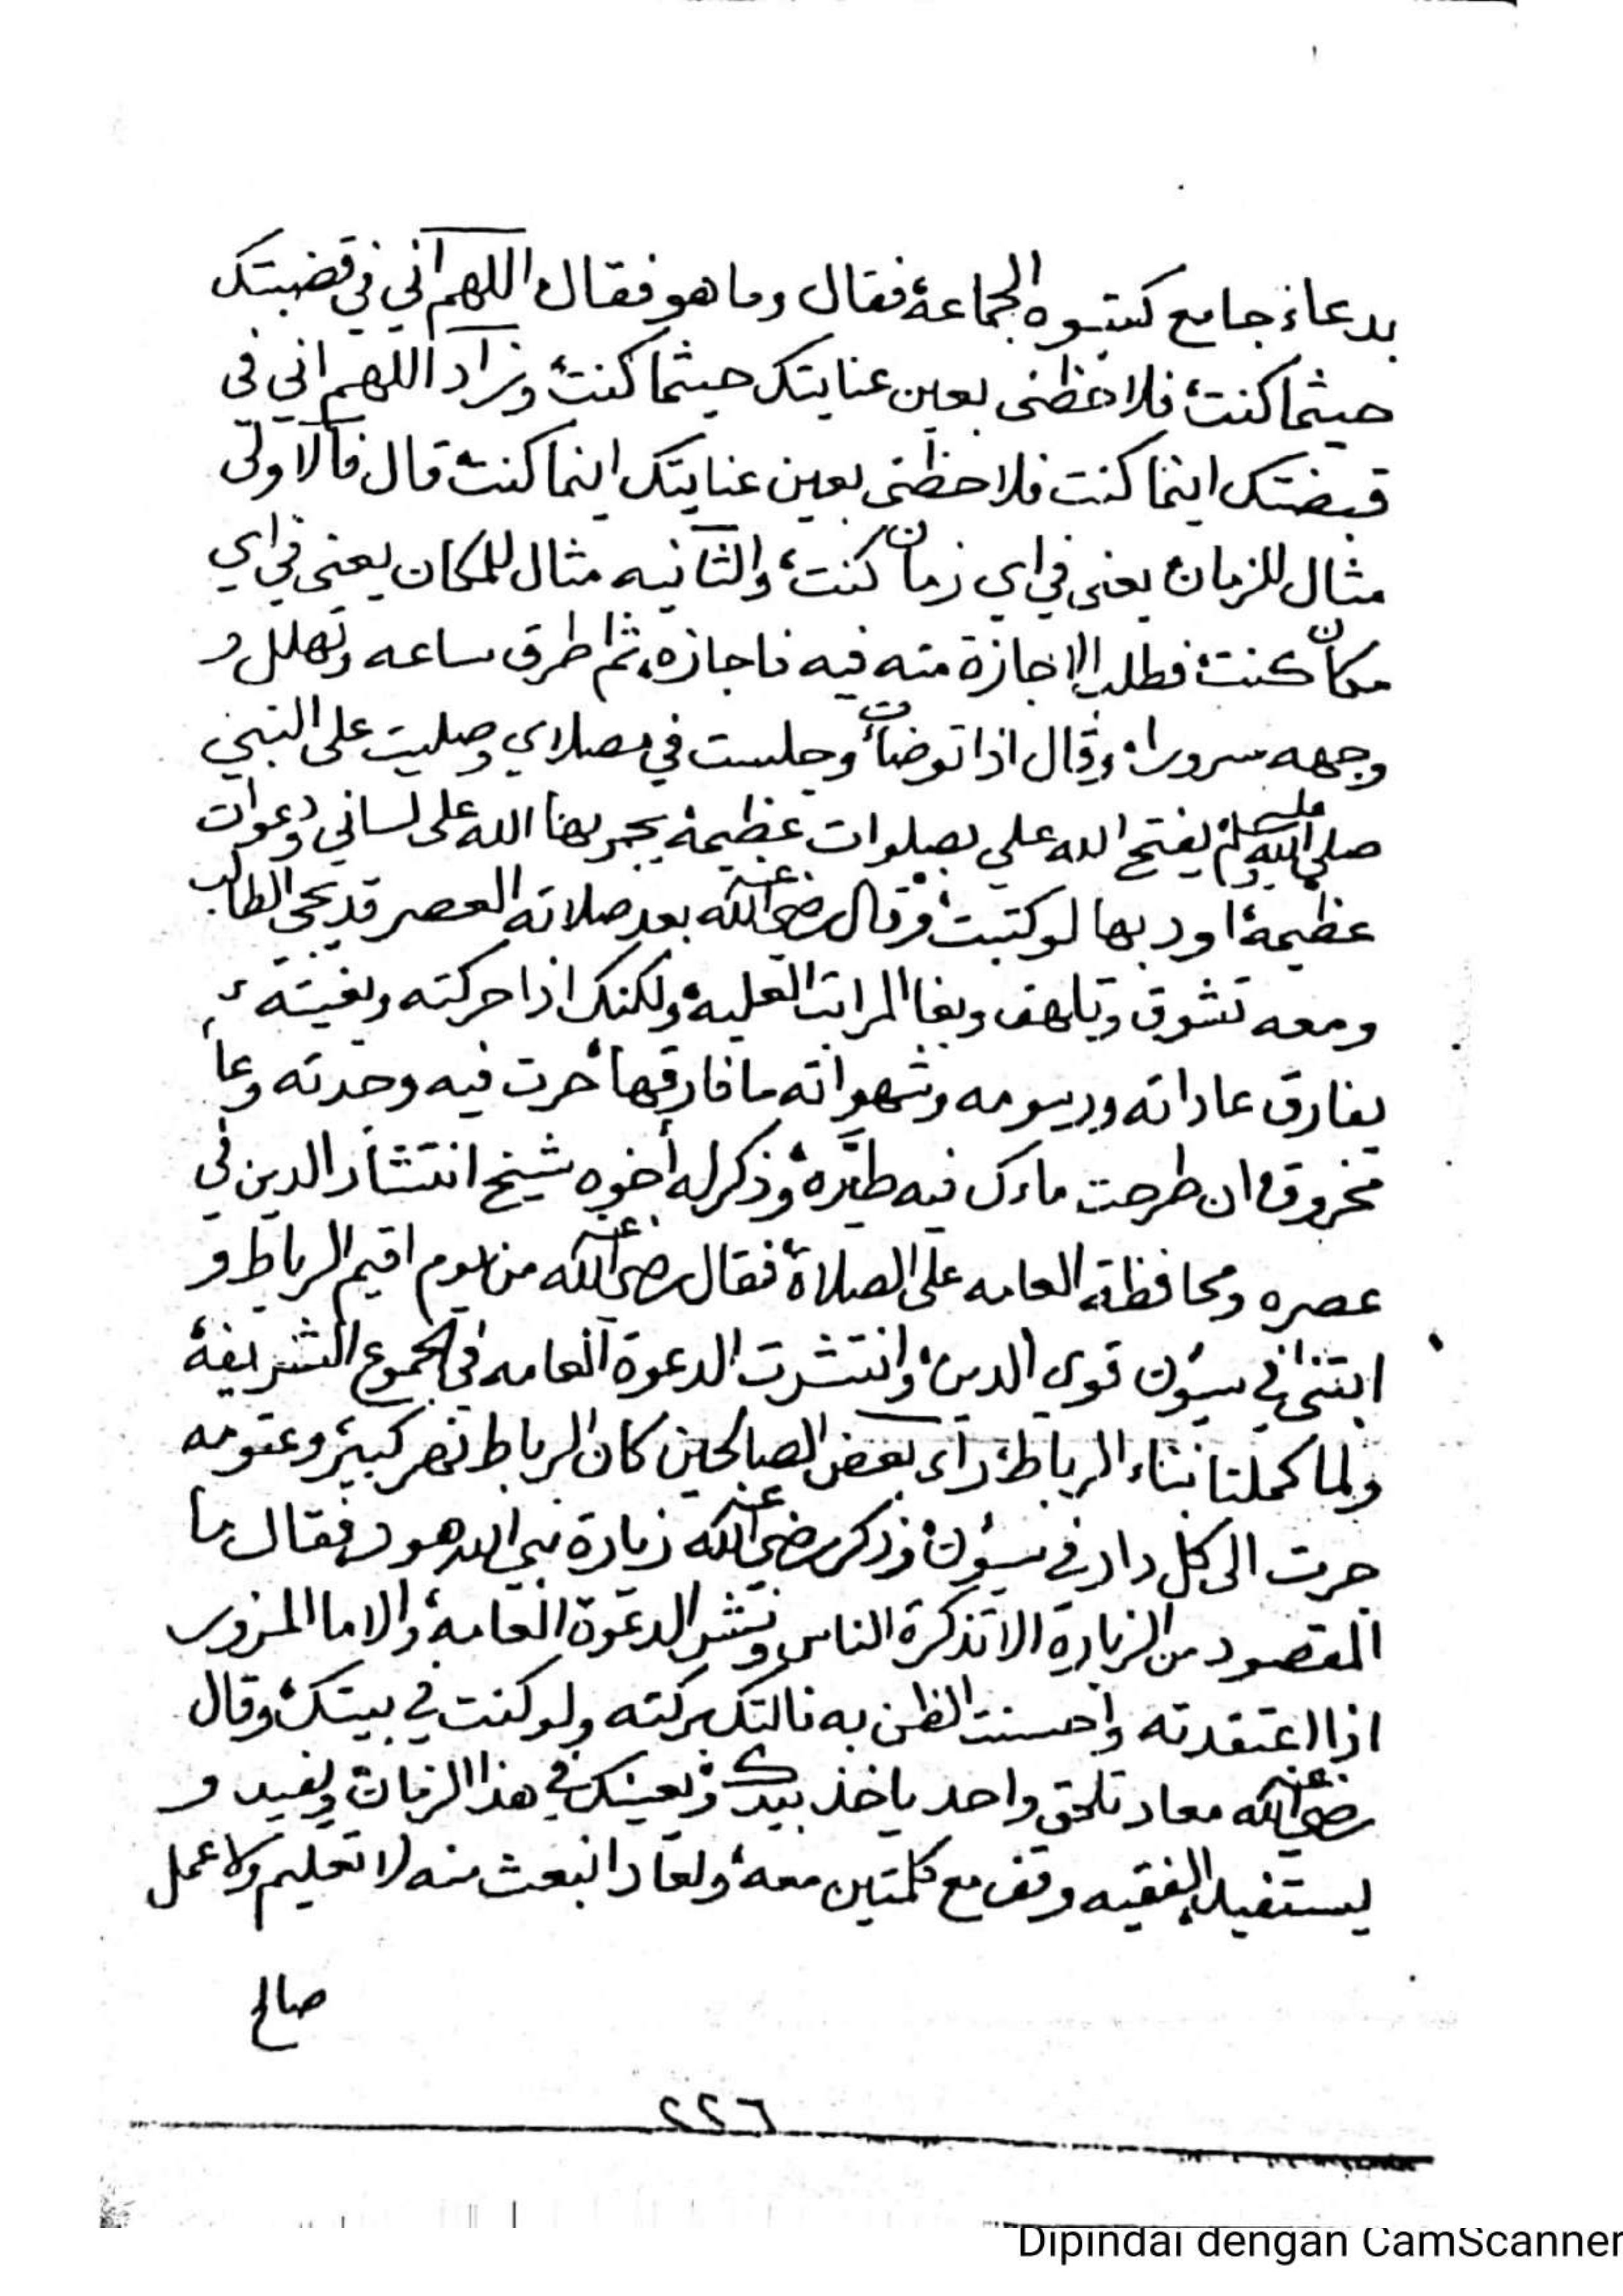 بدعاء جامع كتبوه الجماعة، فقال وما هو فقال اللهم اني في قضبتك
حيثما كنت، فلاحظني بعين عنايتك حيثما كنت، وزاد اللهم اني في
قبضتك اينما كنت فلاحظني بعين عنايتك اينما كنت، قال فالاولى
مثال للزمان، يعني في اي زمان كنت، والثانيه مثال للمكان يعني في اي
مكان كنت، فطلب الاجازة منه فيه فاجازه، ثم اطرق ساعه وتهلل و
وجهه سرورا، وقال اذا توضأت وجلست في مصلاي وصليت على النبي
صلى الله عليه وسلم يفتح الله علي بصلوات عظيمة يجريها الله على لساني ودعوات
عظيمة، اود بها لو كتبت، وقال رضي الله عنه بعد صلاته العصر قد يجي الطالب
ومعه تشوق وتلهف وبغا المراتب العلية، ولكنك اذا حركته وبغيته
يفارق عاداته ورسومه وشهواته ما فارقها، حرت فيه وحدته وعا
مخروق، ان طرحت ماءك فيه طيّره، وذكر له أخوه شيخ انتشار الدين في
عصره ومحافظة العامه على الصلاة، فقال رضي الله عنه من يوم اقيم الرباط و
ابتنى في سيؤن قوي الدين، وانتشرت الدعوة العامه في الجموع الشريفة،
ولما كملنا بناء الرباط، راى بعض الصالحين كان الرباط نهر كبير، وعتومه
جرت الى كل دار في سيؤن، وذكر رضي الله عنه زيارة نبي الله هود، فقال ما
المقصود من الزيارة الا تذكرة الناس ونشر الدعوة العامة، والا ما المزور
اذا اعتقدته واحسنت الظن به نالتك بركته ولو كنت في بيتك، وقال
رضي الله عنه معاد تلحق واحد ياخذ بيدك ويعينك في هذا الزمان، ويفيد و
يستفيد، الفقيه وقف مع كلمتين معه، ولعاد انبعث منه لا تعليم ولا عمل
صالح
٢٢٦
Dipindai dengan CamScanner